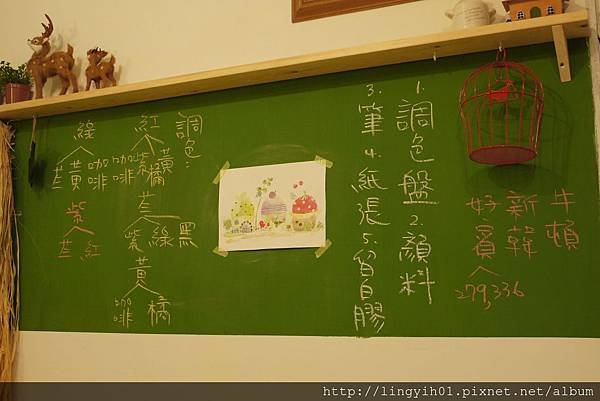 牛頓
新韓
好賓
279,336
1.調色盤 2.顏料
3.筆 4.紙張 5.留白膠
調色:
紅
黃
橘
紫
咖啡
黑
綠
紫
黃
橘
咖啡
綠
咖啡
黃
紫
紅
http://lingyih01.pixnet.net/album